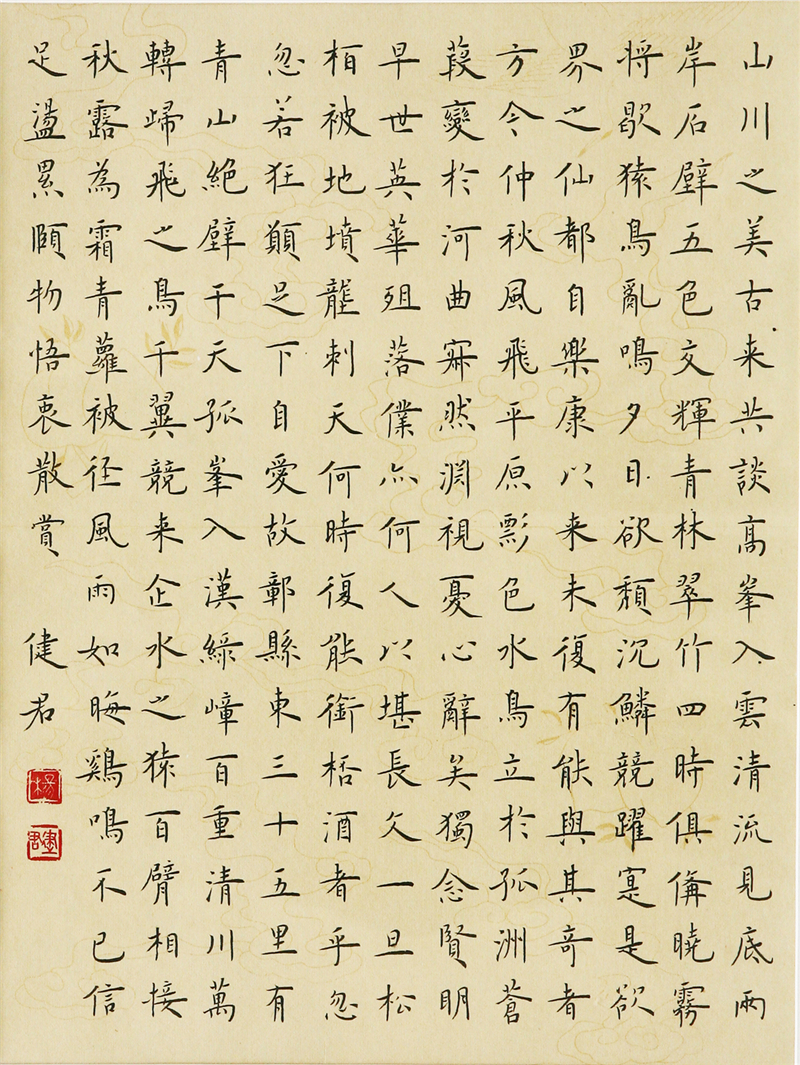 山川之美古来共談高峯入雲清流見底兩
岸石壁五色交輝青林翠竹四時俱備曉霧
将歇猿鳥亂鳴夕日欲頹沉鱗競躍寔是欲
界之仙都自樂康以来未復有能與其奇者
方今仲秋風飛平原影色水鳥立於孤洲蒼
葭變於河曲寂然淵視憂心辭矣獨念賢明
早世英華殂落僕亦何人以堪長久一旦松
栢被地墳壟刺天何時復能銜桮酒者乎忽
忽若狂顛足下自愛故鄣縣東三十五里有
青山絕壁干天孤峯入漢綠嶂百重清川萬
轉歸飛之鳥千翼競来企水之猿百臂相接
秋露為霜青蘿被径風雨如晦鷄鳴不已信
足盪累頤物悟衷散賞 健君